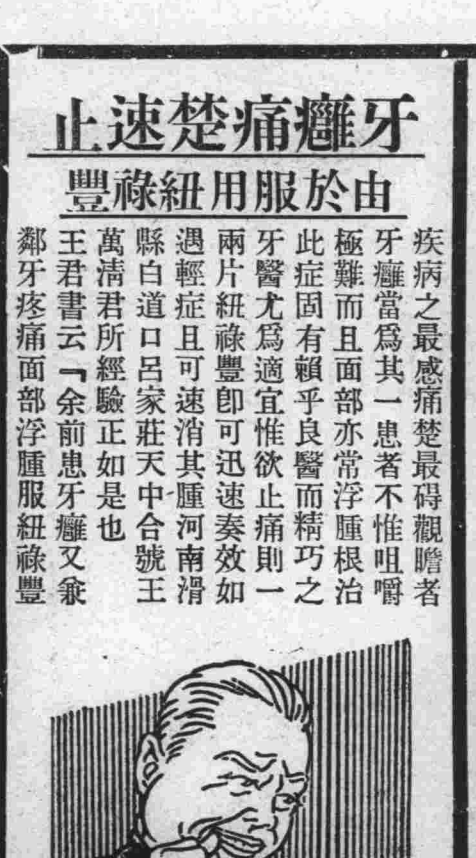 牙癰痛楚速止
由於服用紐祿豐
疾病之最感痛楚最碍觀瞻者
牙癰當爲其一患者不惟咀嚼
極難而且面部亦常浮腫根治
此症固有賴乎良醫而精巧之
牙醫尤爲適宜惟欲止痛則一
兩片紐祿豐卽可迅速奏效如
遇輕症且可速消其腫河南滑
縣白道口呂家莊天中合號王
萬淸君所經驗正如是也
王君書云『余前患牙癰又兼
鄰牙疼痛面部浮腫服紐祿豐